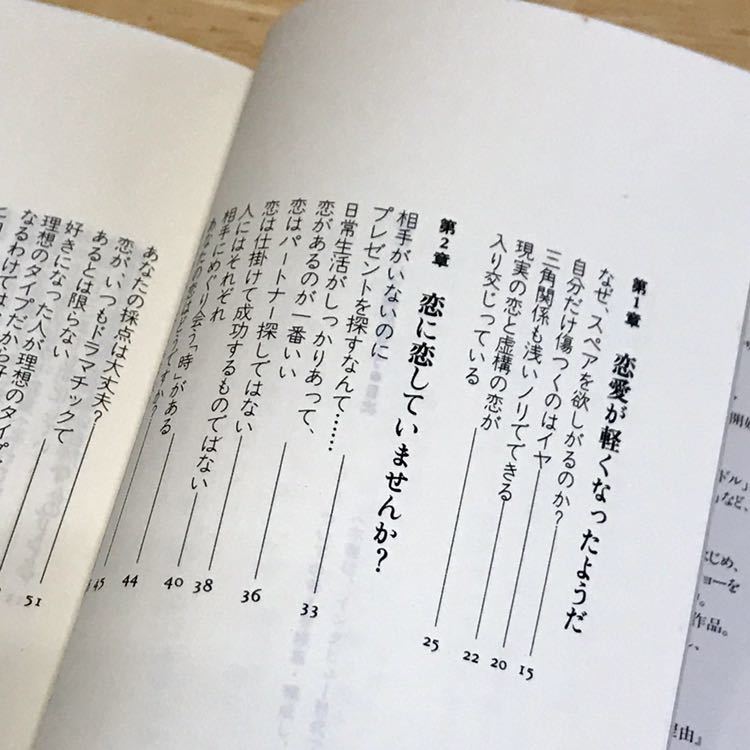 第1章 恋愛が軽くなったようだ
なぜ、スペアを欲しがるのか?
自分だけ傷つくのはイヤ 15
三角関係も浅いノリでできる 20
現実の恋と虚構の恋が
入り交じっている 22
第2章 恋に恋していませんか? 25
相手がいないのに
プレゼントを探すなんて…… 33
日常生活がしっかりあって、
恋があるのが一番いい
恋はパートナー探しではない 36
恋は仕掛けて成功するものではない 38
人にはそれぞれ
相手にめぐり会う「時」がある 40
あなたの恋はどうですか? 44
あなたの採点は大丈夫? 45
恋が、いつもドラマチックで
あるとは限らない 51
好きになった人が理想のタイプ
理想のタイプだから好
なるわけでは
開始
ドル」
」など、
はじめ、
ョーを
作品。
理由』